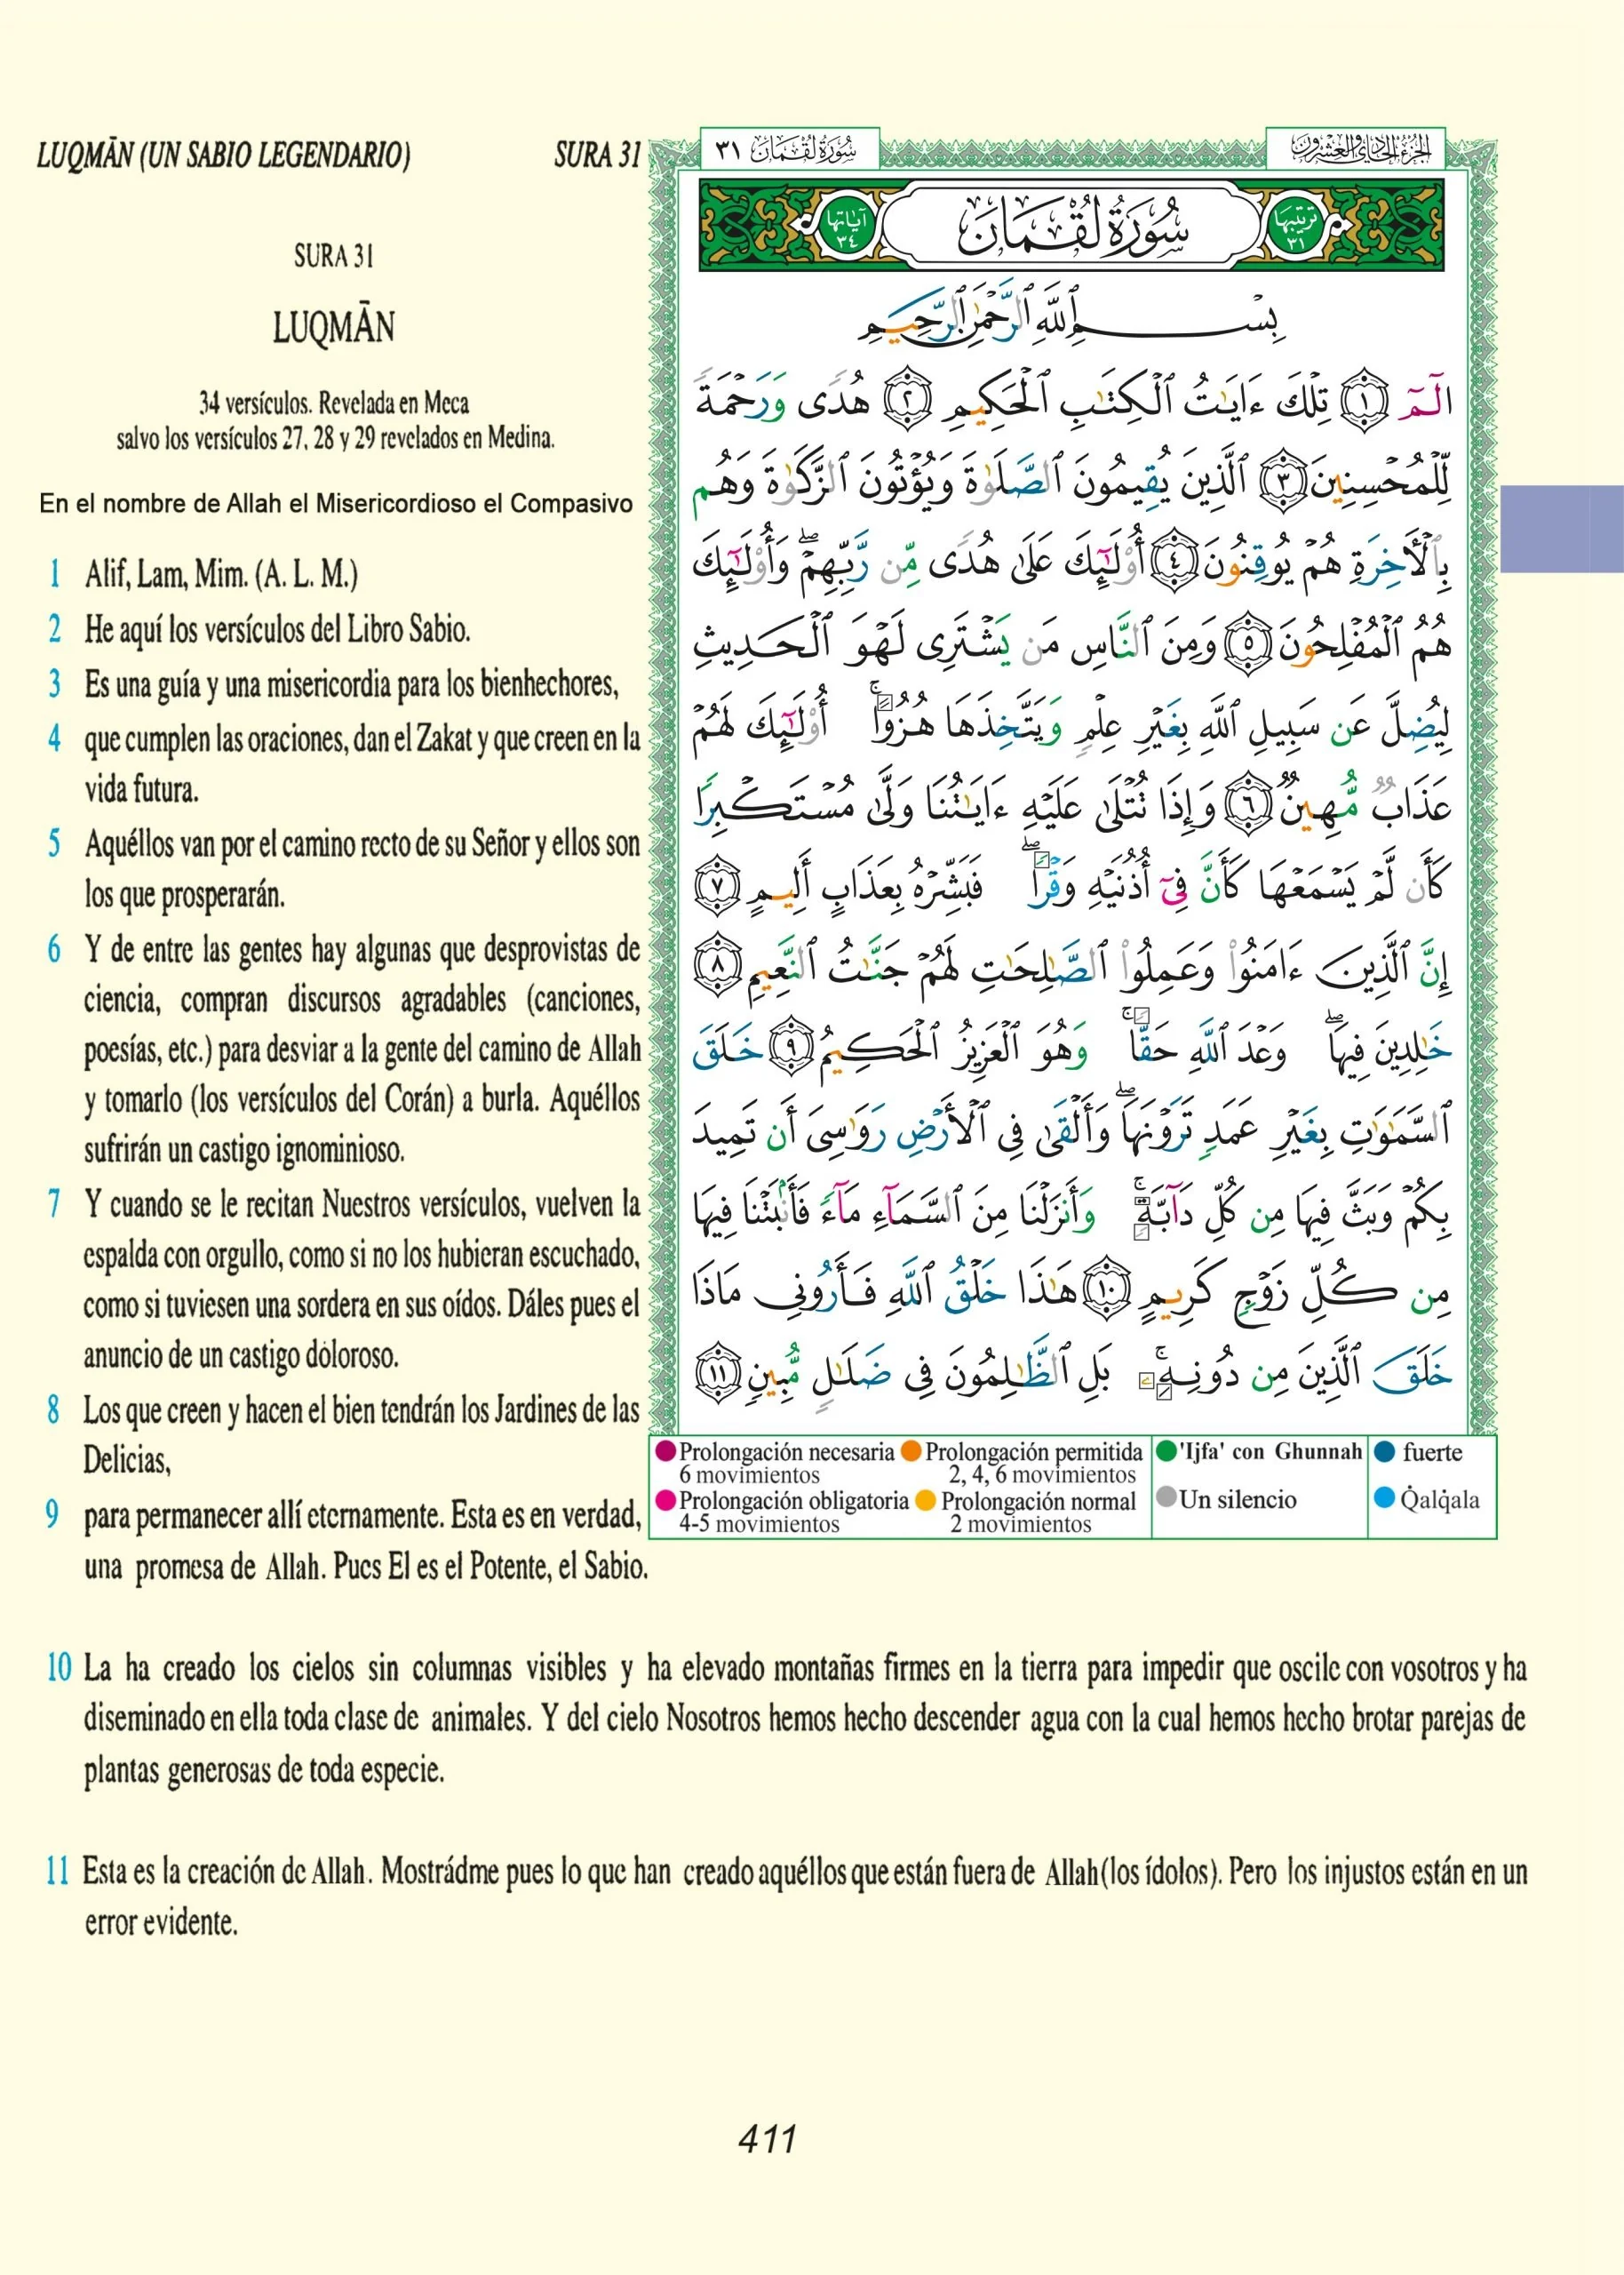 LUQMĀN (UN SABIO LEGENDARIO) SURA 31
SURA 31
LUQMĀN
34 versículos. Revelada en Meca
salvo los versículos 27, 28 y 29 revelados en Medina.
En el nombre de Allah el Misericordioso el Compasivo
1 Alif, Lam, Mim. (A. L. M.)
2 He aquí los versículos del Libro Sabio.
3 Es una guía y una misericordia para los bienhechores,
4 que cumplen las oraciones, dan el Zakat y que creen en la
vida futura.
5 Aquéllos van por el camino recto de su Señor y ellos son
los que prosperarán.
6 Y de entre las gentes hay algunas que desprovistas de
ciencia, compran discursos agradables (canciones,
poesías, etc.) para desviar a la gente del camino de Allah
y tomarlo (los versículos del Corán) a burla. Aquéllos
sufrirán un castigo ignominioso.
7 Y cuando se le recitan Nuestros versículos, vuelven la
espalda con orgullo, como si no los hubieran escuchado,
como si tuviesen una sordera en sus oídos. Dáles pues el
anuncio de un castigo doloroso.
8 Los que creen y hacen el bien tendrán los Jardines de las
Delicias,
9 para permanecer allí eternamente. Esta es en verdad,
una promesa de Allah. Pues El es el Potente, el Sabio.
سُورَةُ لُقْمَان ٣١
الجزء الحادي والعشرون
ترتيبها ٣١
سُورَةُ لُقْمَانَ
آياتها ٣٤
بِسْمِ ٱللَّهِ ٱلرَّحْمَٰنِ ٱلرَّحِيمِ
الٓمٓ ١ تِلْكَ ءَايَٰتُ ٱلْكِتَٰبِ ٱلْحَكِيمِ ٢ هُدًى وَرَحْمَةً
لِّلْمُحْسِنِينَ ٣ ٱلَّذِينَ يُقِيمُونَ ٱلصَّلَوٰةَ وَيُؤْتُونَ ٱلزَّكَوٰةَ وَهُم
بِٱلْأَخِرَةِ هُمْ يُوقِنُونَ ٤ أُو۟لَٰٓئِكَ عَلَىٰ هُدًى مِّن رَّبِّهِمْ ۖ وَأُو۟لَٰٓئِكَ
هُمُ ٱلْمُفْلِحُونَ ٥ وَمِنَ ٱلنَّاسِ مَن يَشْتَرِى لَهْوَ ٱلْحَدِيثِ
لِيُضِلَّ عَن سَبِيلِ ٱللَّهِ بِغَيْرِ عِلْمٍ وَيَتَّخِذَهَا هُزُوًا ۚ أُو۟لَٰٓئِكَ لَهُمْ
عَذَابٌ مُّهِينٌ ٦ وَإِذَا تُتْلَىٰ عَلَيْهِ ءَايَٰتُنَا وَلَّىٰ مُسْتَكْبِرًا
كَأَن لَّمْ يَسْمَعْهَا كَأَنَّ فِىٓ أُذُنَيْهِ وَقْرًا ۖ فَبَشِّرْهُ بِعَذَابٍ أَلِيمٍ ٧
إِنَّ ٱلَّذِينَ ءَامَنُوا۟ وَعَمِلُوا۟ ٱلصَّٰلِحَٰتِ لَهُمْ جَنَّٰتُ ٱلنَّعِيمِ ٨
خَٰلِدِينَ فِيهَا ۖ وَعْدَ ٱللَّهِ حَقًّا ۚ وَهُوَ ٱلْعَزِيزُ ٱلْحَكِيمُ ٩ خَلَقَ
ٱلسَّمَٰوَٰتِ بِغَيْرِ عَمَدٍ تَرَوْنَهَا ۖ وَأَلْقَىٰ فِى ٱلْأَرْضِ رَوَٰسِىَ أَن تَمِيدَ
بِكُمْ وَبَثَّ فِيهَا مِن كُلِّ دَآبَّةٍ ۚ وَأَنزَلْنَا مِنَ ٱلسَّمَآءِ مَآءً فَأَنۢبَتْنَا فِيهَا
مِن كُلِّ زَوْجٍ كَرِيمٍ ١٠ هَٰذَا خَلْقُ ٱللَّهِ فَأَرُونِى مَاذَا
خَلَقَ ٱلَّذِينَ مِن دُونِهِ ۚ بَلِ ٱلظَّٰلِمُونَ فِى ضَلَٰلٍ مُّبِينٍ ١١
Prolongación necesaria 6 movimientos
Prolongación permitida 2, 4, 6 movimientos
'Ijfa' con Ghunnah
fuerte
Prolongación obligatoria 4-5 movimientos
Prolongación normal 2 movimientos
Un silencio
Q̇alq̇ala
10 La ha creado los cielos sin columnas visibles y ha elevado montañas firmes en la tierra para impedir que oscile con vosotros y ha
diseminado en ella toda clase de animales. Y del cielo Nosotros hemos hecho descender agua con la cual hemos hecho brotar parejas de
plantas generosas de toda especie.
11 Esta es la creación de Allah. Mostrádme pues lo que han creado aquéllos que están fuera de Allah(los ídolos). Pero los injustos están en un
error evidente.
411